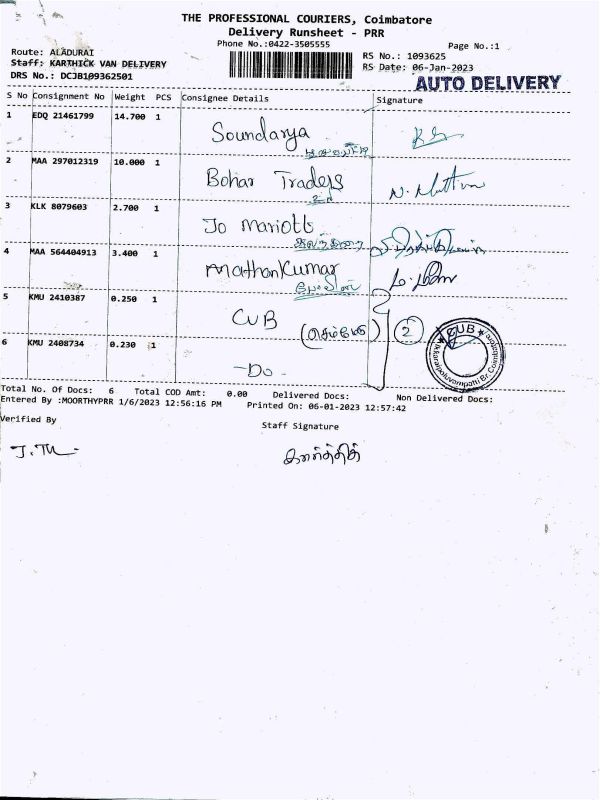 THE PROFESSIONAL COURIERS, Coimbatore
Delivery Runsheet - PRR
Phone No.:0422-3505555
Page No.:1
Route: ALADURAI
RS No.: 1093625
Staff: KARTHICK VAN DELIVERY
RS Date: 06-Jan-2023
DRS No.: DCJB109362501
AUTO DELIVERY
S No Consignment No Weight PCS Consignee Details Signature
1 EDQ 21461799 14.700 1 Soundarya
2 MAA 297012319 10.000 1 Bohar Traders
3 KLK 8079603 2.700 1 Jo Mariott
4 MAA 564404913 3.400 1 Mathankumar
5 KMU 2410387 0.250 1 CUB 2
6 KMU 2408734 0.230 1 -Do-
CUB
Total No. Of Docs: 6 Total COD Amt: 0.00 Delivered Docs: Non Delivered Docs:
Entered By :MOORTHYPRR 1/6/2023 12:56:16 PM Printed On: 06-01-2023 12:57:42
Verified By
Staff Signature
கார்த்திக்